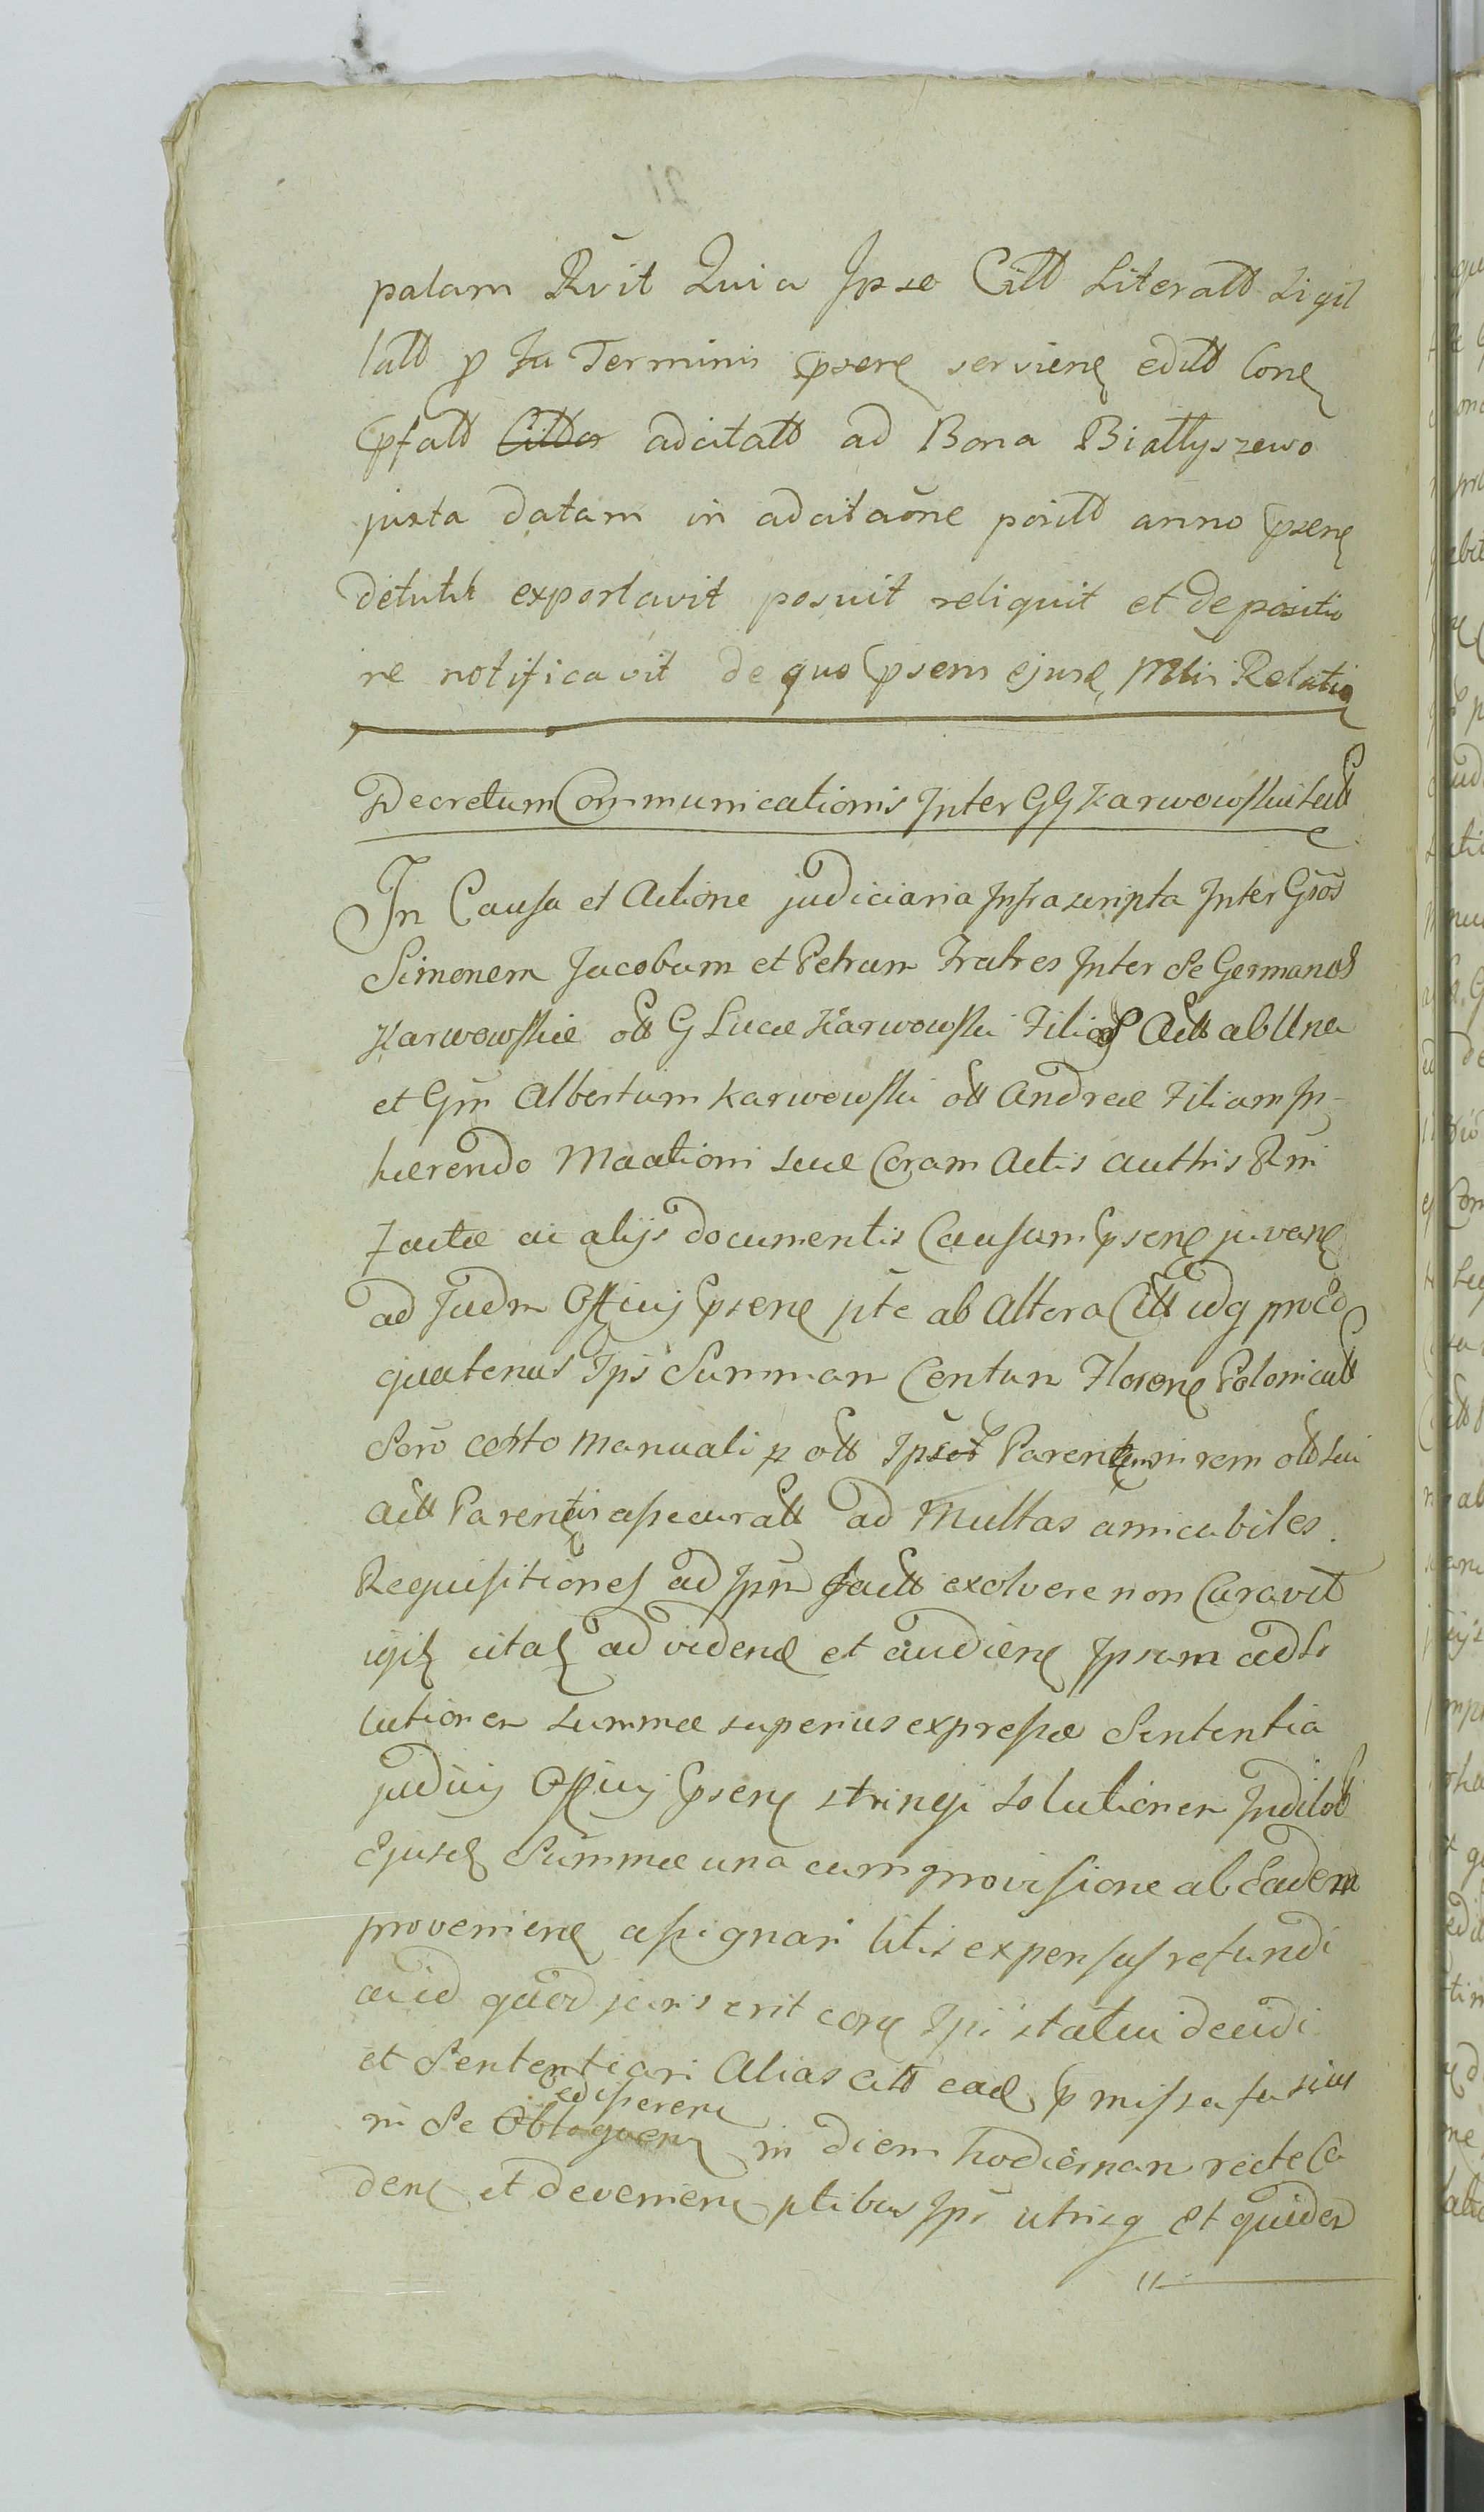 palam Rvit Quia Ipse Citt Literatt Sigil
latt p Ju Terminis psene serviene editt Cone
psatt Cittos adcitatt ad Bona Biallyszewo
juxta datam in adcitaõne positt anno psene
detulit exportavit posuit reliquit et depositio
ne notificavit de quo psens ejusd Mlis Relatio
Decretum Communicationis Inter GG Karwowskie latt
In Causa et Actione judiciaria Infrascripta Inter Gsos
Simonem Jacobum et Petrum Fratres Inter Se Germanos
Karwowskie ott G Lucæ Karwowski Filios Actt ab Una
et Gm Albertum Karwowski ott Andreæ Filium In-
hærendo Maationi suæ Coram Actis authis Rni
Factæ ac alijs documentis Causam psene juvane
ad Judm Officij psene pte ab Altera Citt idq proeo
quatenus Ips Summam Centum Florene Polonicatt
Scro certo Manuali p ott Ipsor Parentem in rem ott sui
actt Parentis assecuratt ad Multas amicabiles
Requisitiones ad Ipm factt exolvere non Curavit
igit citat ad vidend et audiene Ipsum ad So
lutionem summæ superius expressæ Sententia
judicij Officij psene stringi Solutionem Indilatt
Ejusd Summæ una cum provisione ab Eadem
proveniene assignari litis expensas refundi
ac id quod juris erit core Ipi statui decidi
et Sententiari Alias citt ead pmissa fusius
edisserene
in Se Obloquene in diem hodiernam recte Ca
dene et deveniene ptibus Ips utrisq Et quidem